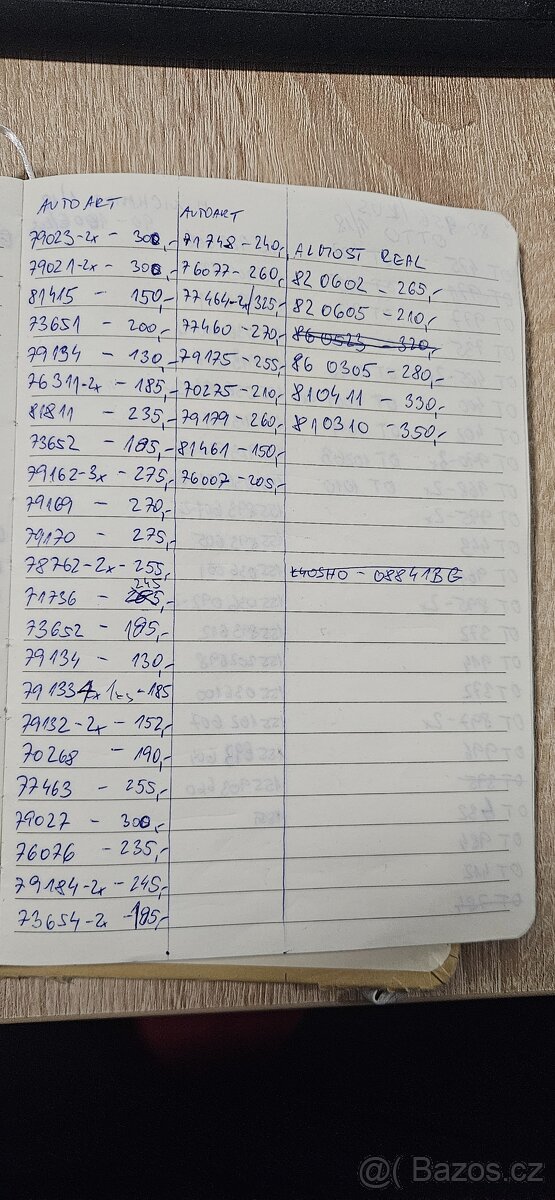 AUTOART
79023-2x - 300,-
79021-2x - 300,-
81415 - 150,-
73651 - 200,-
79134 - 130,-
76311-2x - 185,-
81811 - 235,-
73652 - 185,-
79162-3x - 275,-
79169 - 270,-
79170 - 275,-
78762-2x - 255,-
245
71736 - 265,-
73652 - 185,-
79134 - 130,-
79133 - 185
79132-2x - 152,-
70268 - 190,-
77463 - 255,-
79027 - 300,-
76076 - 235,-
79184-2x - 245,-
73654-2x - 185,-
AUTOART
71748 - 240,-
76077 - 260,-
77464-2x/325,-
77460 - 270,-
79175 - 255,-
70275 - 210,-
79179 - 260,-
81461 - 150,-
76007 - 205,-
ALMOST REAL
820602 - 265,-
820605 - 210,-
860523 - 320,-
860305 - 280,-
810411 - 330,-
810310 - 350,-
KYOSHO - 08841BG
@( Bazos.cz